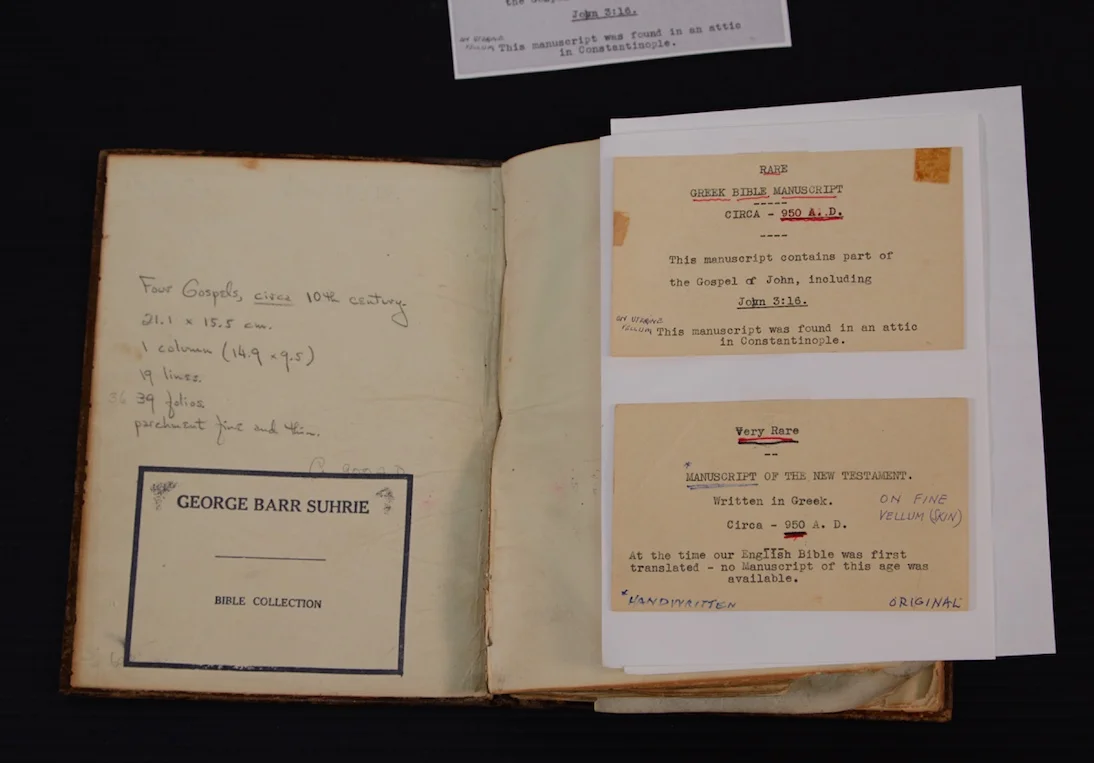 the Gospel of John, including
John 3:16.
ON UTERINE
VELLUM This manuscript was found in an attic
in Constantinople.
Four Gospels, circa 10th century.
21.1 x 15.5 cm.
1 column (14.9 x 9.5)
19 lines.
36 39 folios.
parchment fine and thin.
GEORGE BARR SUHRIE
BIBLE COLLECTION
RARE
GREEK BIBLE MANUSCRIPT
-----
CIRCA - 950 A. D.
----
This manuscript contains part of
the Gospel of John, including
John 3:16.
ON UTERINE
VELLUM This manuscript was found in an attic
in Constantinople.
Very Rare
--
*MANUSCRIPT OF THE NEW TESTAMENT.
Written in Greek.
ON FINE
VELLUM (SKIN)
Circa - 950 A. D.
At the time our English Bible was first
translated - no Manuscript of this age was
available.
*HANDWRITTEN
ORIGINAL